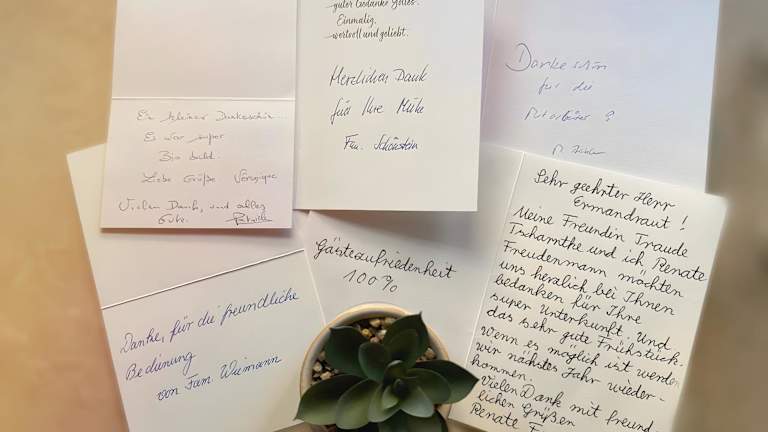 guter Gedanke Gottes.
Einmalig,
wertvoll und geliebt.
Herzlichen Dank
für Ihre Mühe
Fam. Schönstein
Ein kleiner Dankeschön...
Es war super
Bis bald.
Liebe Grüße
Vielen Dank, und alles
Gute.
Danke schön
für die
Danke, für die freundliche
Bedienung
von Fam. Wiemann
Gästezufriedenheit
100%
Sehr geehrter Herr
Ermandraut!
Meine Freundin Traude
Tscharntke und ich Renate
Freudenmann möchten
uns herzlich bei Ihnen
bedanken für Ihre
super Unterkunft. Und
das sehr gute Frühstück.
Wenn es möglich ist werden
wir nächstes Jahr wieder-
kommen.
Vielen Dank mit freund-
lichen Grüßen
Renate F